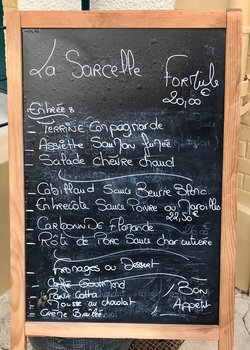 La Sarcelle
Formule
20,00€
Entrées
Terrine Campagnarde
Assiette Saumon Fumée
Salade chèvre chaud
Cabillaud Sauce Beurre Blanc
Entrecôte Sauce Poivre ou Maroilles
22,50€
Carbonnade Flamande
Rôti de Porc Sauce charcutière
Fromages ou Dessert
Café Gourmand
Pana Cotta
Mousse au chocolat
Crème Brulée
Bon
Appétit